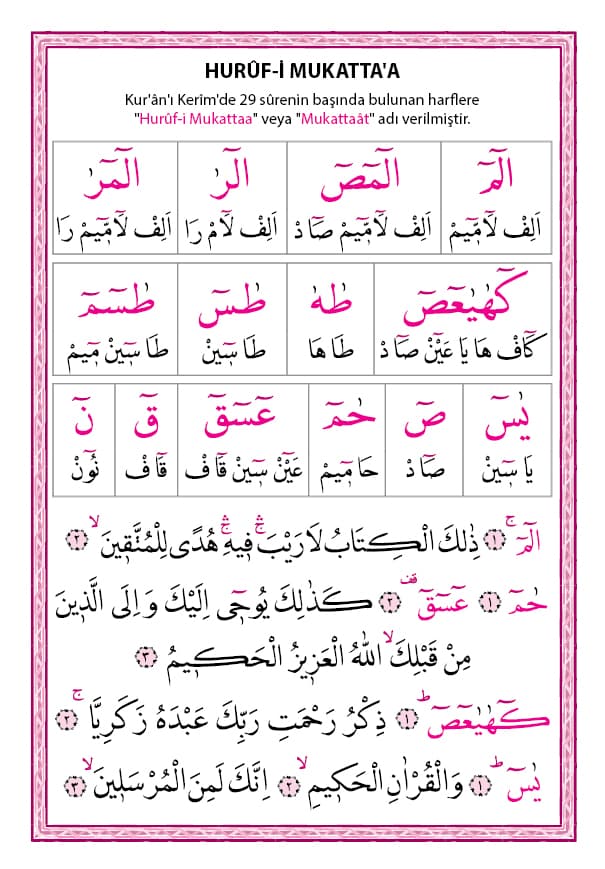 HURÛF-İ MUKATTA'A
Kur'ân'ı Kerîm'de 29 sûrenin başında bulunan harflere
"Hurûf-i Mukattaa" veya "Mukattaât" adı verilmiştir.
الٓمٓ الٓمٓصٓ الٓرٰ الٓمٓرٰ
اَلِفْ لَٓامّٓيمْ اَلِفْ لَٓامّٓيمْ صَٓادْ اَلِفْ لَٓامْ رَا اَلِفْ لَٓامّٓيمْ رَا
كٓهٰيٰعٓصٓ طٰهٰ طٰسٓ طٰسٓمٓ
كَٓافْ هَا يَا عَيْنْ صَٓادْ طَا هَا طَا سٓينْ طَا سٓينْ مٓيمْ
يٰسٓ صٓ حٰمٓ عٓسٓقٓ قٓ نٓ
يَا سٓينْ صَٓادْ حَا مٓيمْ عَيْنْ سٓينْ قَٓافْ قَٓافْ نُٓونْ
الٓمٓ ۚ ﴿١﴾ ذٰلِكَ الْكِتَابُ لَا رَيْبَ ۛ فٖيهِ ۛ هُدًى لِلْمُتَّقٖينَ ۙ ﴿٢﴾
حٰمٓ ﴿١﴾ عٓسٓقٓ قف ﴿٢﴾ كَذٰلِكَ يُوحٖٓى اِلَيْكَ وَاِلَى الَّذٖينَ
مِنْ قَبْلِكَ ۙ اللّٰهُ الْعَزٖيزُ الْحَكٖيمُ ﴿٣﴾
كٓهٰيٰعٓصٓ ۜ ﴿١﴾ ذِكْرُ رَحْمَتِ رَبِّكَ عَبْدَهُ زَكَرِيَّا ۚ ﴿٢﴾
يٰسٓ ۜ ﴿١﴾ وَالْقُرْاٰنِ الْحَكٖيمِ ۙ ﴿٢﴾ اِنَّكَ لَمِنَ الْمُرْسَلٖينَ ۙ ﴿٣﴾